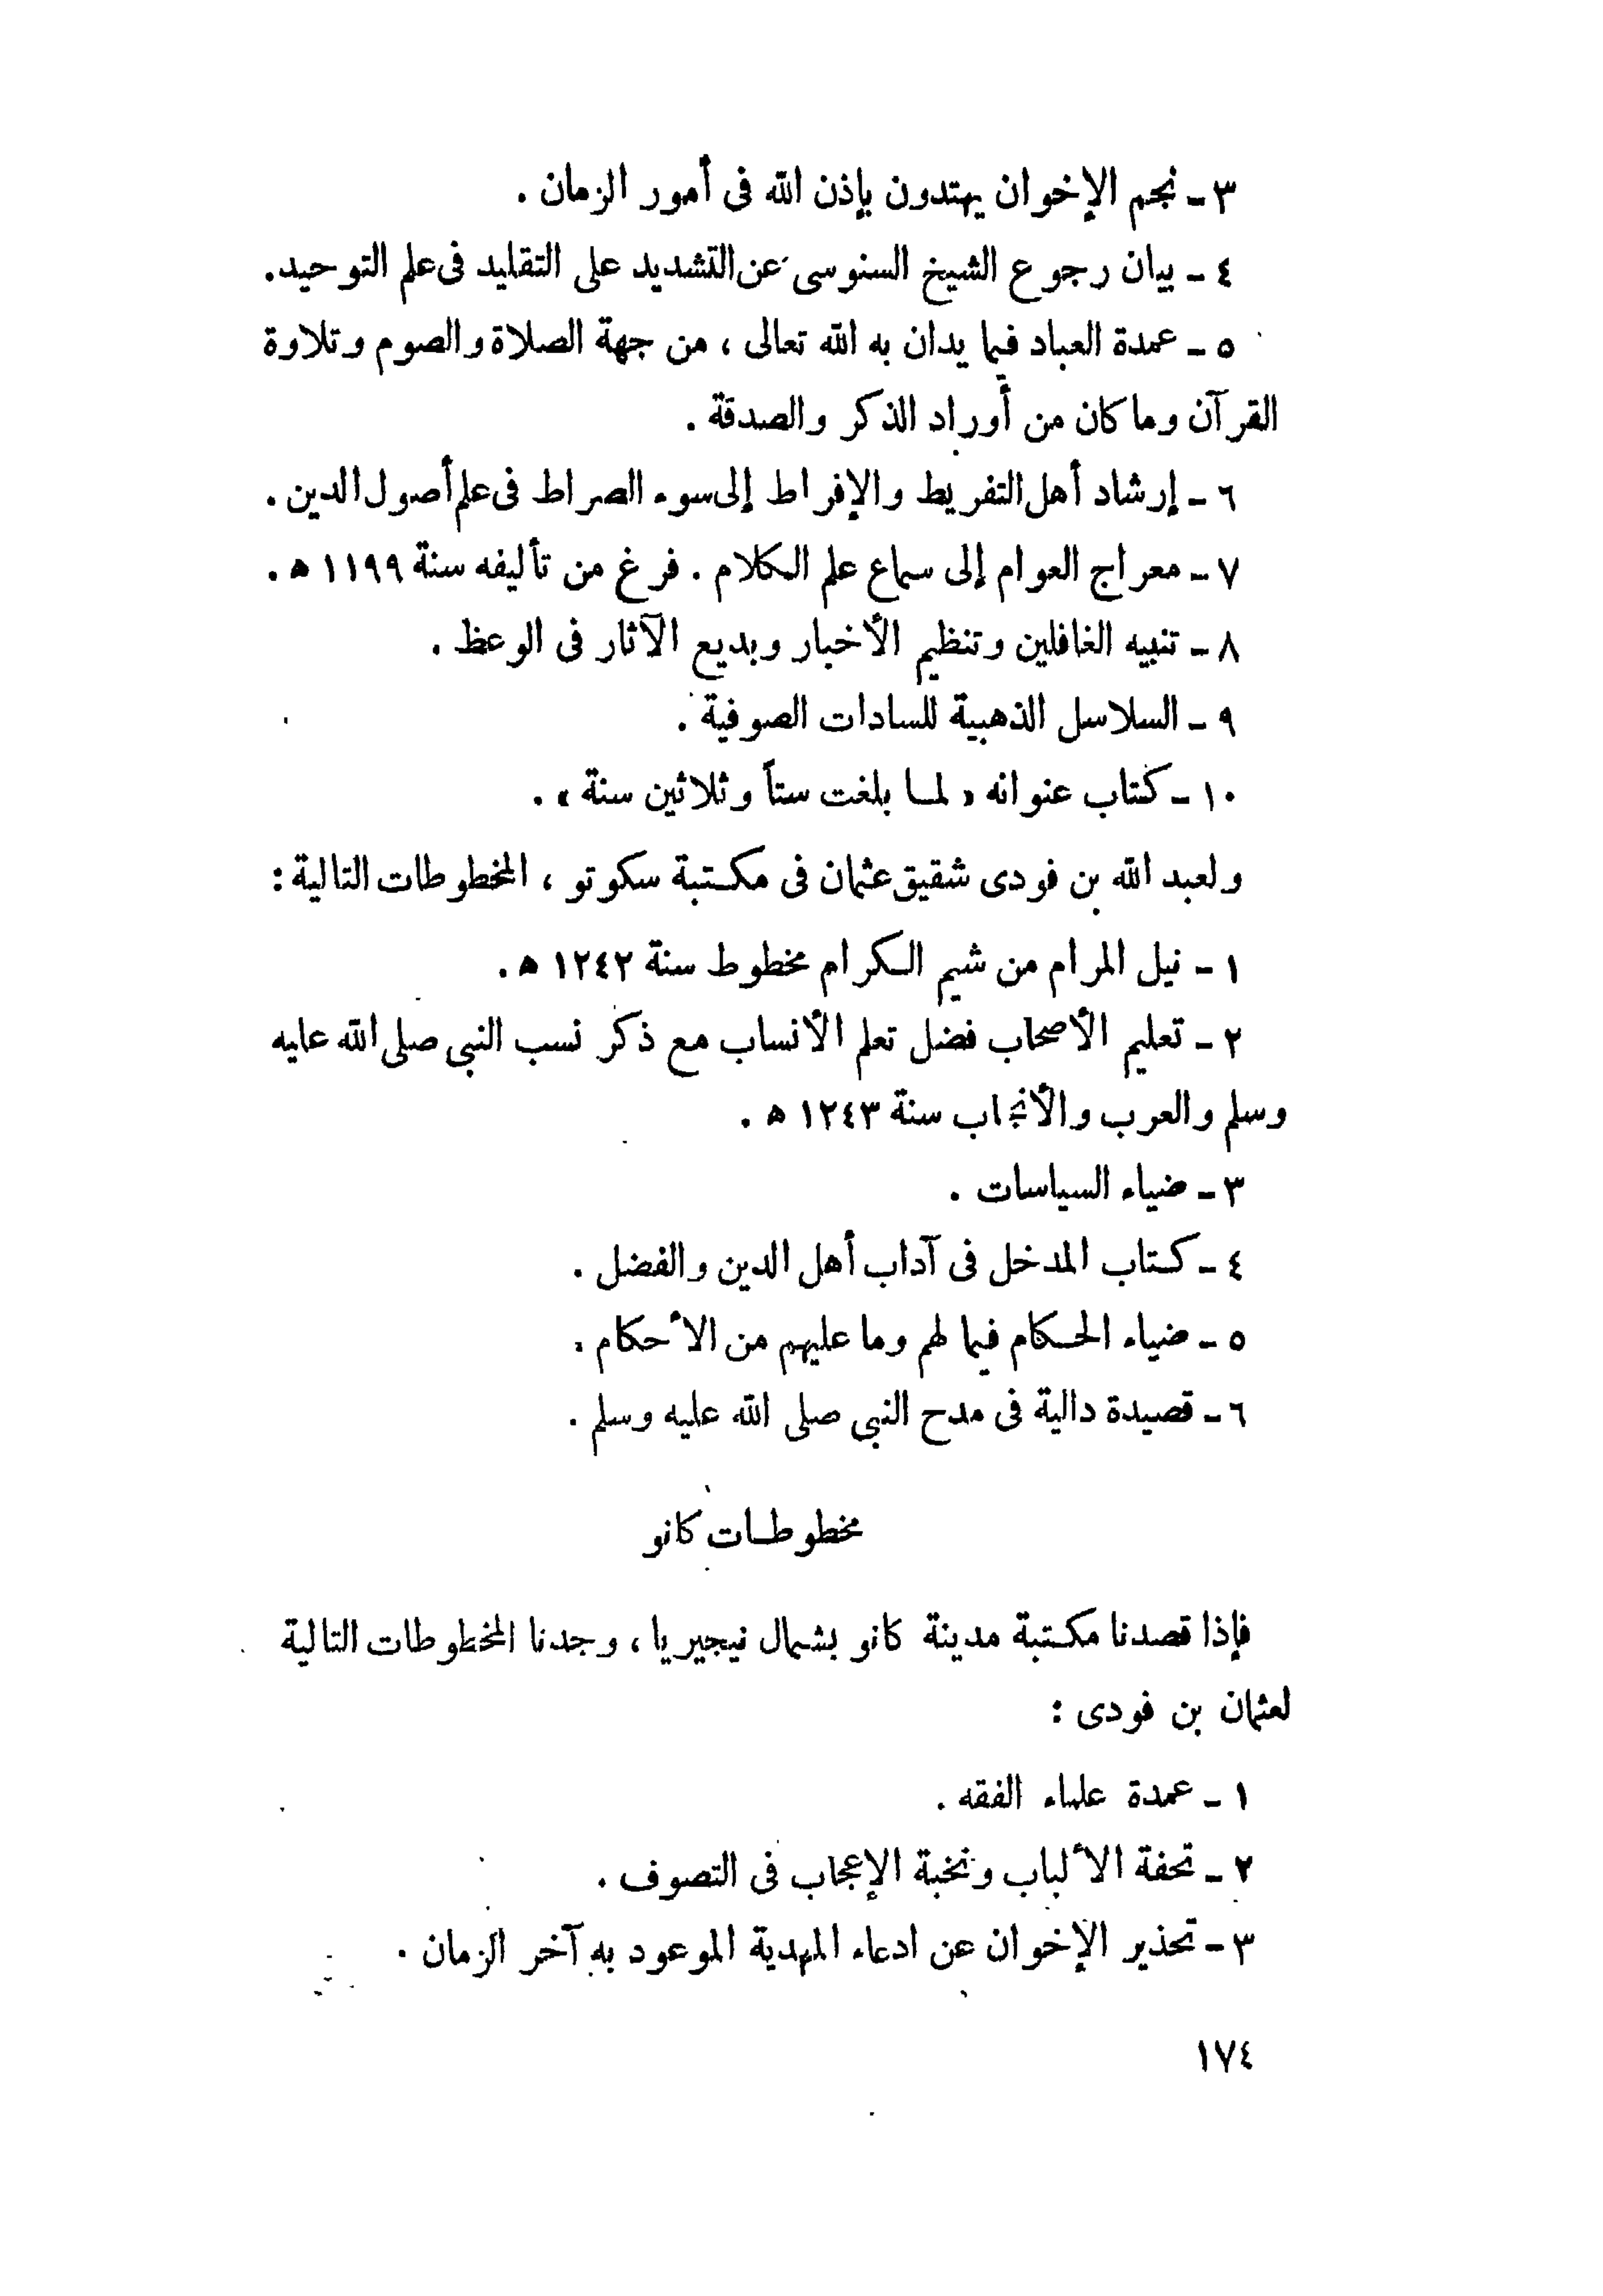 ٣ – نجم الإخوان يهتدون بإذن الله فى أمور الزمان .
٤ – بيان رجوع الشيخ السنوسى عن التشديد على التقليد فى علم التوحيد.
٥ – عمدة العباد فيما يدان به الله تعالى ، من جهة الصلاة والصوم وتلاوة
القرآن وما كان من أوراد الذكر والصدقة .
٦ – إرشاد أهل التفريط والإفراط إلى سوء الصراط فى علم أصول الدين .
٧ – معراج العوام إلى سماع علم الكلام . فرغ من تأليفه سنة ١١٩٩ هـ .
٨ – تنبيه الغافلين وتنظيم الأخبار وبديع الآثار فى الوعظ .
٩ – السلاسل الذهبية للسادات الصوفية .
١٠ – كتاب عنوانه « لما بلغت ستاً وثلاثين سنة » .
ولعبد الله بن فودى شقيق عثمان فى مكتبة سكوتو ، المخطوطات التالية :
١ – نيل المرام من شيم الكرام مخطوط سنة ١٢٤٢ هـ .
٢ – تعليم الأصحاب فضل تعلم الأنساب مع ذكر نسب النبى صلى الله عليه
وسلم والعرب والأنجاب سنة ١٢٤٣ هـ .
٣ – ضياء السياسات .
٤ – كتاب المدخل فى آداب أهل الدين والفضل .
٥ – ضياء الحكام فيما لهم وما عليهم من الأحكام .
٦ – قصيدة دالية فى مدح النبى صلى الله عليه وسلم .
مخطوطات كانو
فإذا قصدنا مكتبة مدينة كانو بشمال نيجيريا ، وجدنا المخطوطات التالية
لعثمان بن فودى :
١ – عمدة علماء الفقه .
٢ – تحفة الألباب ونخبة الإعجاب فى التصوف .
٣ – تحذير الإخوان عن ادعاء المهدية الموعود به آخر الزمان .
١٧٤